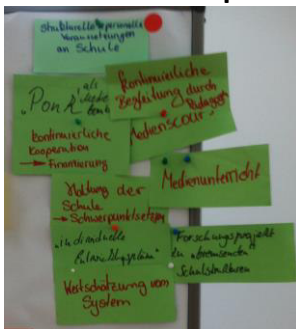 Strukturelle + personelle
Voraussetzungen
an Schule
als
"PonK"
kontinuierliche
Kooperation
→ Finanzierung
Kontinuierliche
Begleitung durch
Pädagogen
Medienscout
Medienunterricht
Haltung der
Schule
→ Schwerpunktsetzung
"individuelle
Entwicklungspläne"
Wertschätzung vom
System
Forschungsprojekt
zu "bremsenden"
Schulstrukturen